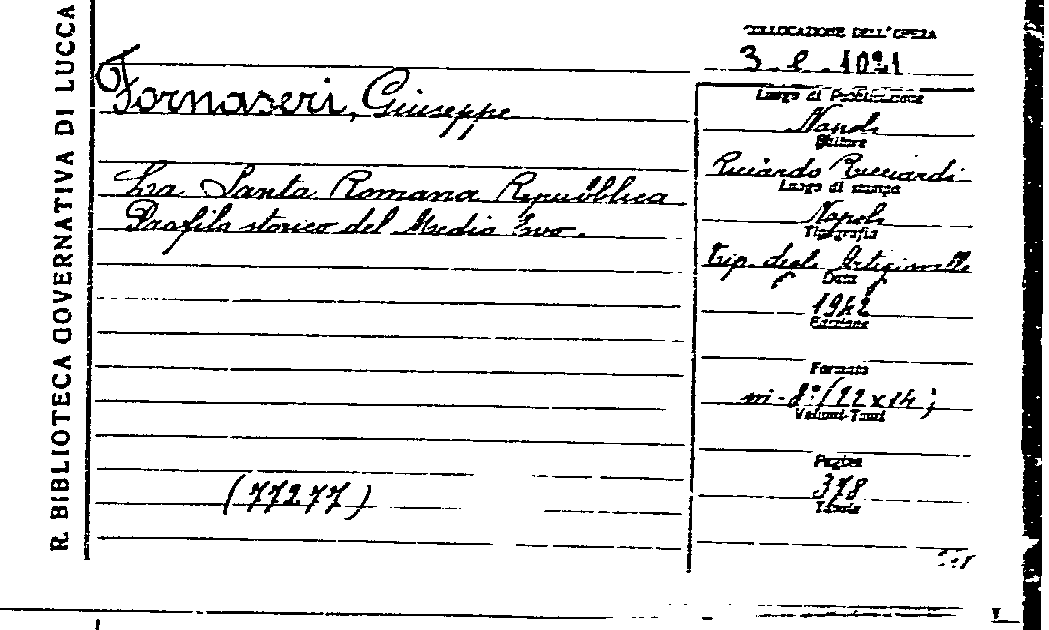 R. BIBLIOTECA GOVERNATIVA DI LUCCA
COLLOCAZIONE DELL'OPERA
3. l. 1021
Fornaseri, Giuseppe
La Santa Romana Repubblica
Profilo storico del Medio Evo.
(77277)
Luogo di Pubblicazione
Napoli
Editore
Ricciardo Ricciardi
Luogo di stampa
Napoli
Tipografia
Tip. degli Artigianelli
Data
1942
Edizione
Formato
in-8° (22x14)
Volumi-Tomi
Pagine
378
Tavole